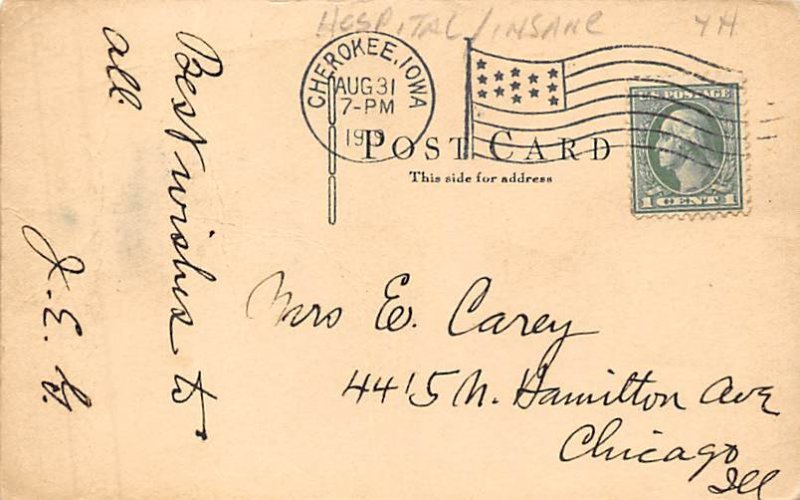 HOSPITAL/INSANE
CHEROKEE, IOWA
AUG 31
7-PM
U.S. POSTAGE
1 CENT 1
POST CARD
This side for address
Best wishes to
all.
J. E. G.
Mrs E. Carey
4415 N. Hamilton Ave
Chicago
Ill